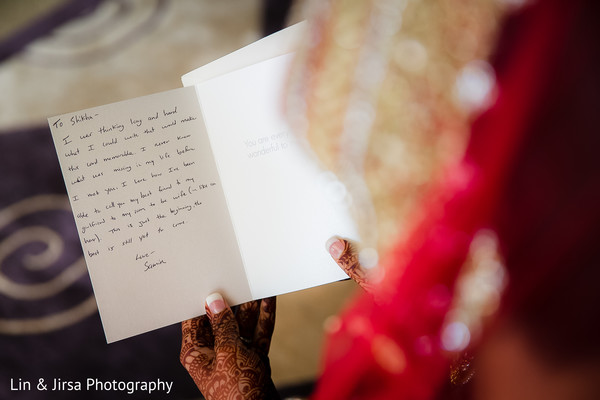 To Shikha -
I was thinking long and hard
what I could write that would make
this card memorable. I never knew
what was missing in my life before
I met you. I love how I've been
able to call you my best friend to my
girlfriend to my soon to be wife (- like an
hour). This is just the beginning, the
best is still yet to come.
Love -
You are
wonderful
Lin & Jirsa Photography